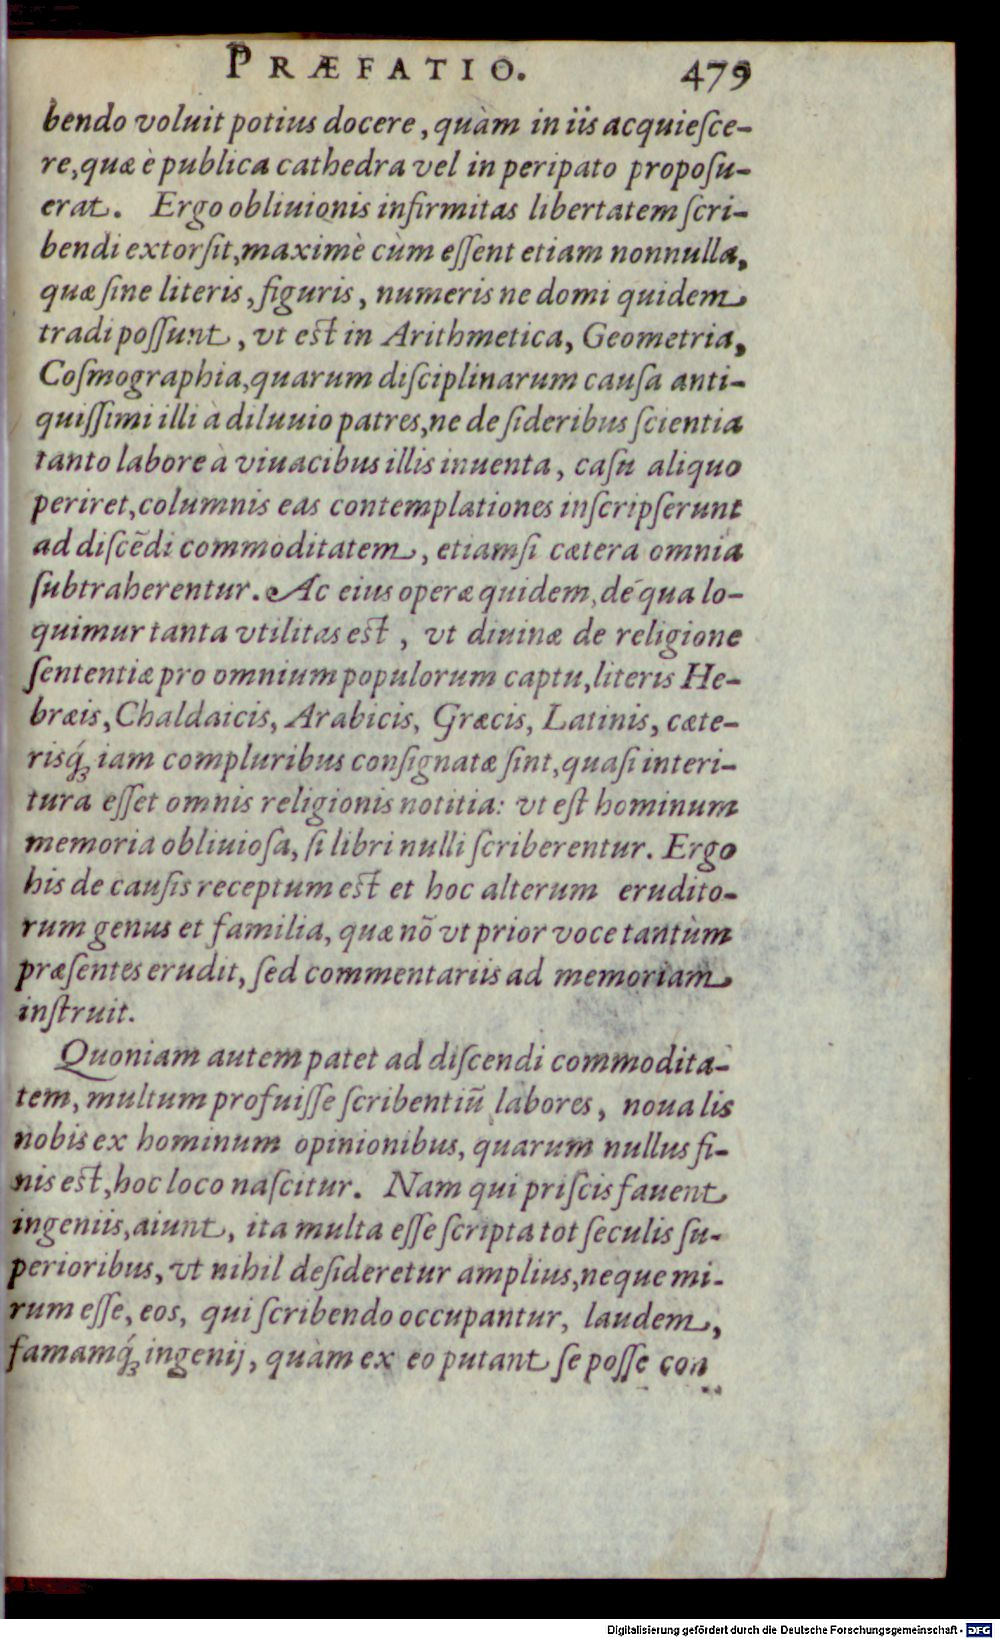 PRÆFATIO. 479
bendo voluit potius docere, quàm in iis acquieſce-
re, quæ è publica cathedra vel in peripato propoſu-
erat. Ergo obliuionis infirmitas libertatem ſcri-
bendi extorſit, maximè cùm eſſent etiam nonnulla,
quæ ſine literis, figuris, numeris ne domi quidem
tradi poſſunt, vt est in Arithmetica, Geometria,
Coſmographia, quarum diſciplinarum cauſa anti-
quiſſimi illi à diluuio patres, ne de ſideribus ſcientia
tanto labore à viuacibus illis inuenta, caſu aliquo
periret, columnis eas contemplationes inſcripſerunt
ad diſcẽdi commoditatem, etiamſi cætera omnia
ſubtraherentur. Ac eius operæ quidem, de qua lo-
quimur tanta vtilitas est, vt diuinæ de religione
ſententiæ pro omnium populorum captu, literis He-
bræis, Chaldaicis, Arabicis, Græcis, Latinis, cæte-
risq́; iam compluribus conſignatæ ſint, quaſi interi-
tura eſſet omnis religionis notitia: vt eſt hominum
memoria obliuioſa, ſi libri nulli ſcriberentur. Ergo
his de cauſis receptum est et hoc alterum erudito-
rum genus et familia, quæ nõ vt prior voce tantùm
præſentes erudit, ſed commentariis ad memoriam
inſtruit.
Quoniam autem patet ad diſcendi commodita-
tem, multum profuiſſe ſcribentiũ labores, noua lis
nobis ex hominum opinionibus, quarum nullus fi-
nis est, hoc loco naſcitur. Nam qui priſcis fauent
ingeniis, aiunt, ita multa eſſe ſcripta tot ſeculis ſu-
perioribus, vt nihil deſideretur amplius, neque mi-
rum eſſe, eos, qui ſcribendo occupantur, laudem,
famamq́; ingenij, quàm ex eo putant ſe poſſe con
Digitalisierung gefördert durch die Deutsche Forschungsgemeinschaft - DFG